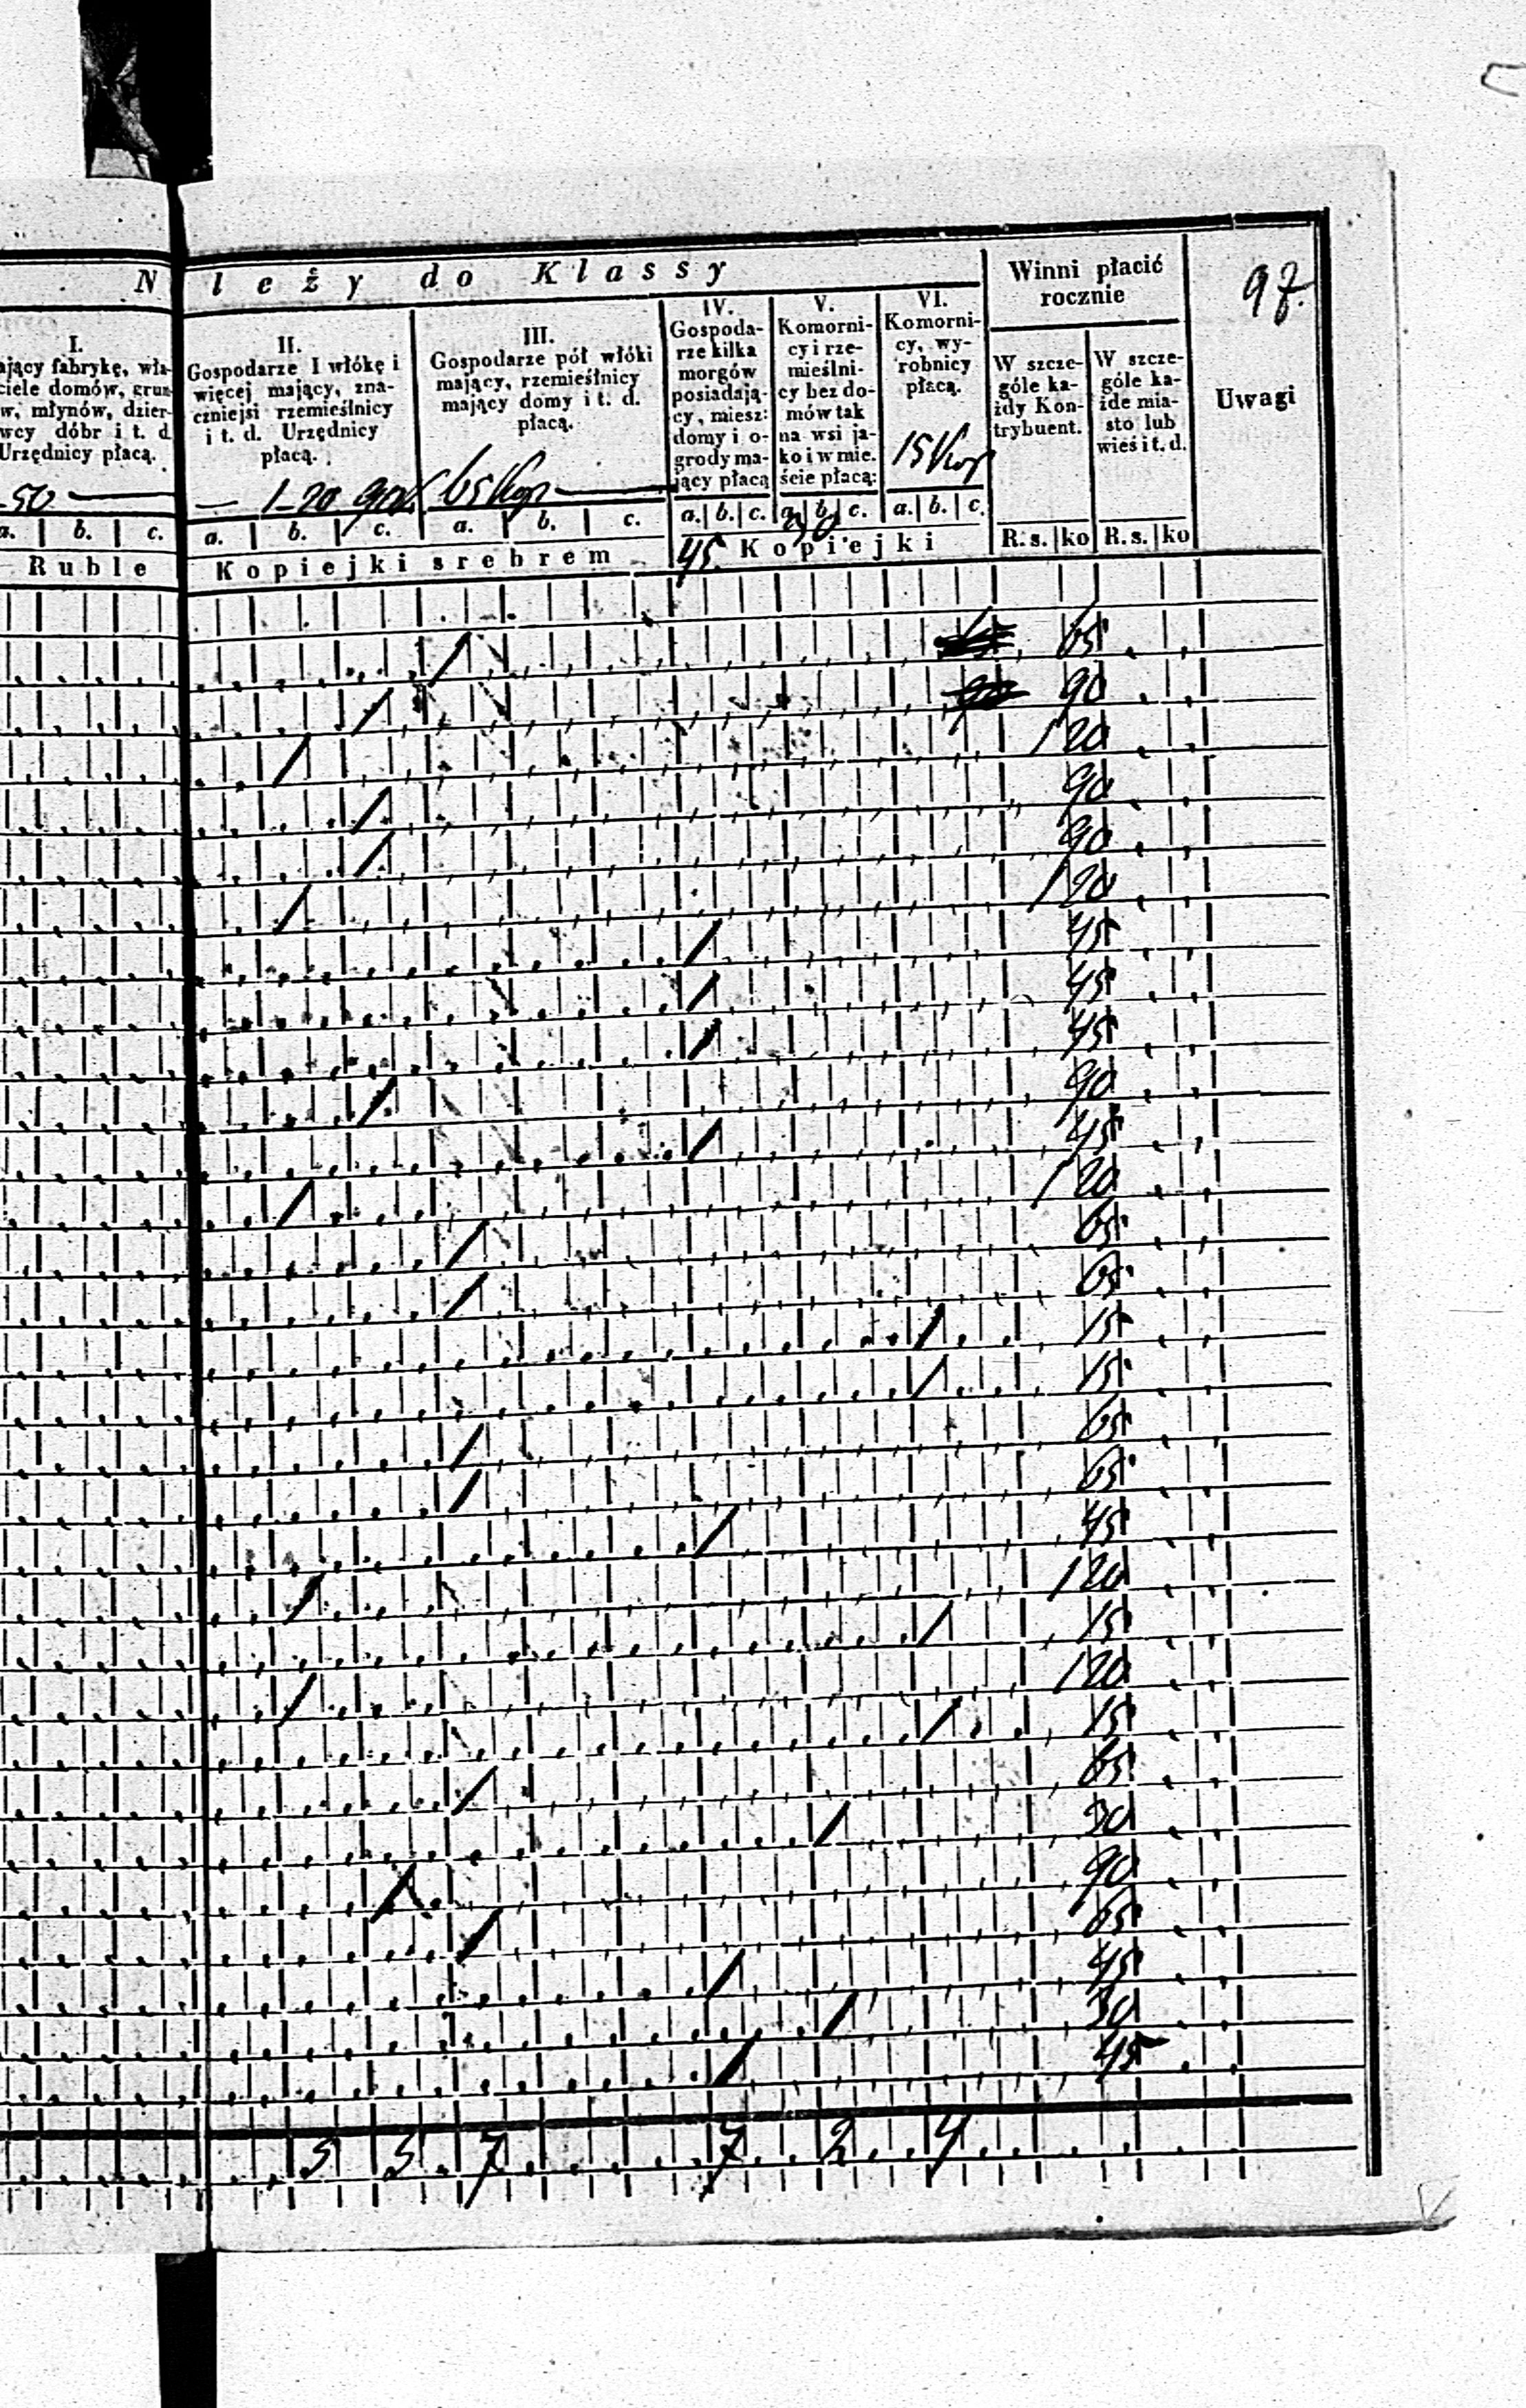 N leży do Klassy
Winni płacić
rocznie
97.
I.
ający fabrykę, wła-
ciele domów, grun-
w, młynów, dzier-
wcy dóbr i t. d
Urzędnicy płacą.
-50
II.
Gospodarze I włókę i
więcej mający, zna-
czniejsi rzemieślnicy
i t. d. Urzędnicy
płacą.
1-20 90k
III.
Gospodarze pół włóki
mający, rzemieślnicy
mający domy i t. d.
płacą.
65 Kop
IV.
Gospoda-
rze kilka
morgów
posiadają-
cy, miesz:
domy i o-
grody ma-
jący płacą
V.
Komorni-
cy i rze-
mieślni-
cy bez do-
mów tak
na wsi ja-
ko i w mie.
ście płacą:
VI.
Komorni-
cy, wy-
robnicy
płacą.
15 Kop
W szcze-
góle ka-
żdy Kon-
trybuent.
W szcze-
góle ka-
żde mia-
sto lub
wieś i t. d.
Uwagi
a. b. c. a. b. c. a. b. c. a. b. c. a. b. c. a. b. c.
30
R. s. ko R. s. ko
Ruble Kopiejki srebrem 45 Kopiejki
/ 65
/ 90 90
/ 1 20
/ 90
/ 90
/ 1 20
/ 45
/ 45
/ 45
/ 90
/ 45
/ 1 20
/ 65
/ 65
/ 15
/ 15
/ 65
/ 65
/ 45
/ 1 20
/ 15
/ 1 20
/ 15
/ 65
/ 30
/ 90
/ 65
/ 45
/ 30
/ 45
5 5 7 7 2 4